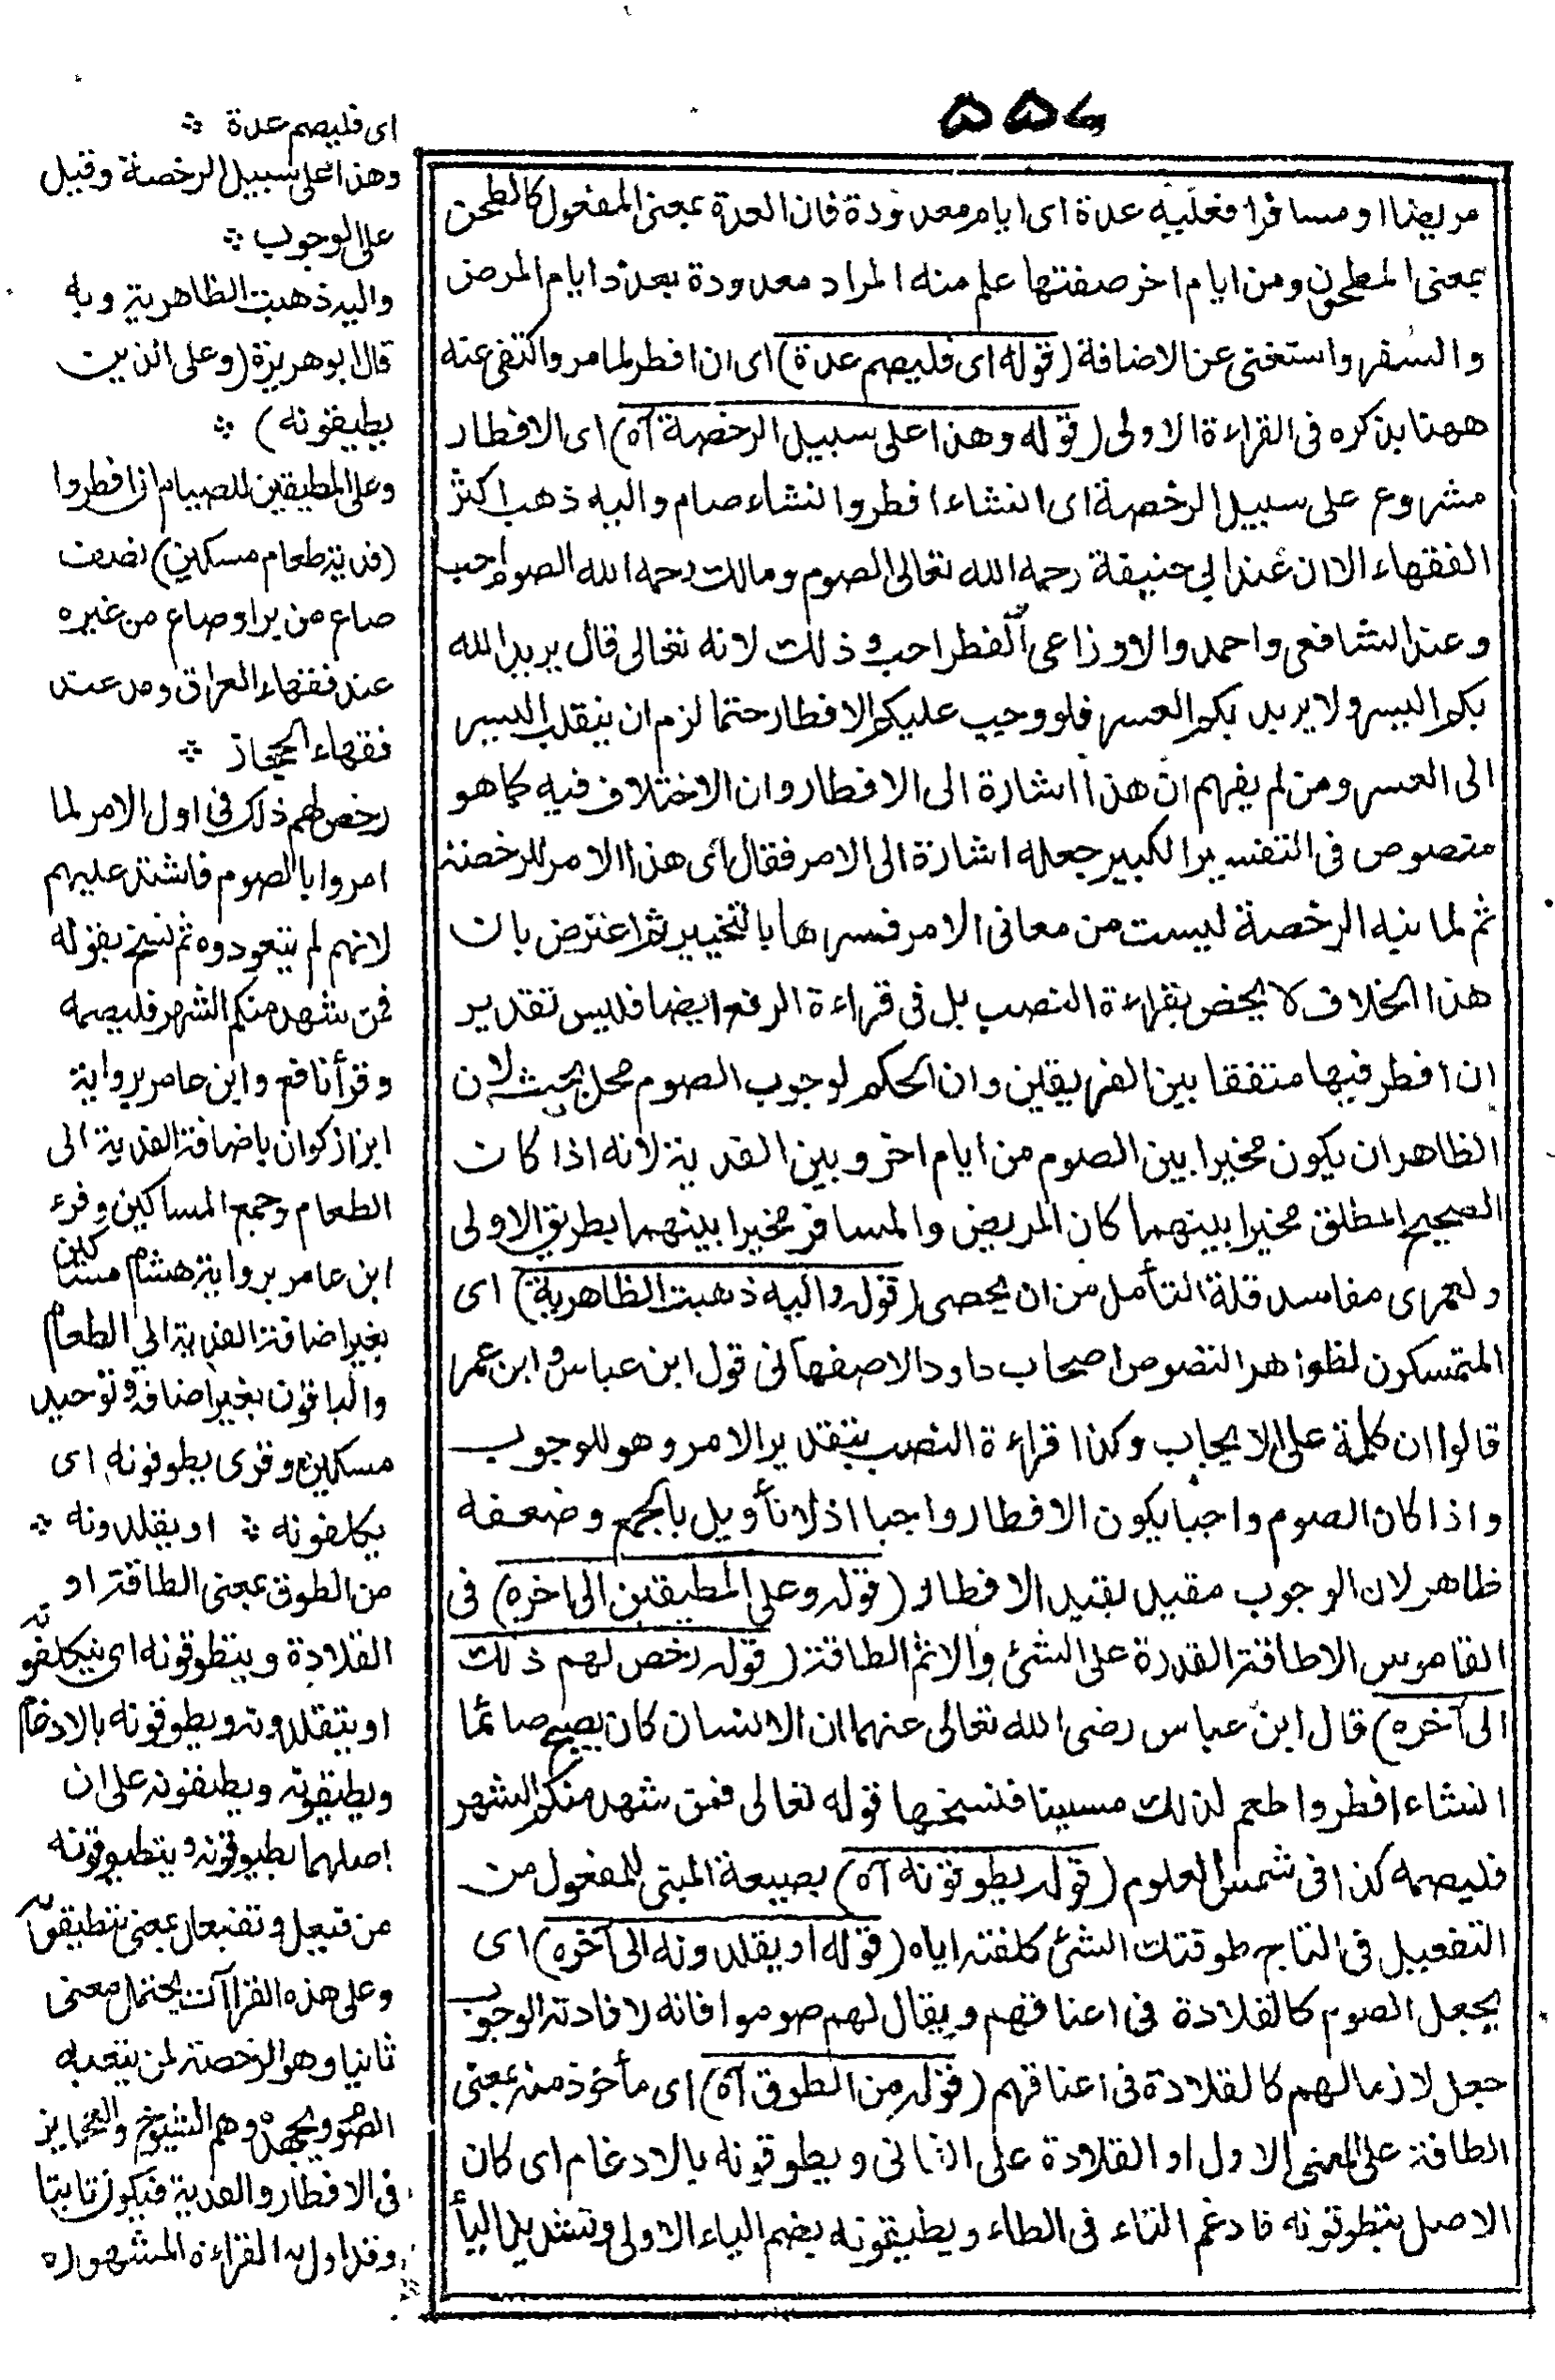 ۵۵۷
مريضا او مسافرا فعليه عدة اى ايام معدودة فان العدة بمعنى المفعول كالطحن
بمعنى المطحون ومن ايام اخر صفتها علم منه المراد معدودة بعدد ايام المرض
والسفر واستغنى عن الاضافة (قوله اى فليصم عدة) اى ان افطر لما مر واكتفى عنه
ههنا بذكره فى القراءة الاولى (قوله وهذا على سبيل الرخصة آه) اى الافطار
مشروع على سبيل الرخصة اى انشاء افطر وانشاء صام واليه ذهب اكثر
الفقهاء الا ان عند ابي حنيفة رحمه الله تعالى الصوم ومالك رحمه الله الصوم احب
وعند الشافعى واحمد والاوزاعى الفطر احب وذلك لانه تعالى قال يريد الله
بكم اليسر ولا يريد بكم العسر فلو وجب عليكم الافطار حتما لزم ان ينقلب اليسر
الى العسر ومن لم يفهم ان هذا اشارة الى الافطار وان الاختلاف فيه كما هو
منصوص فى التفسير الكبير جعله اشارة الى الامر فقال اى هذا الامر للرخصة
ثم لما نيه الرخصة ليست من معانى الامر فسرها بالتخيير ثم اعترض بان
هذا الخلاف لا يخص بقراءة النصب بل فى قراءة الرفع ايضا فليس تقدير
ان افطر فيها متفقا بين الفريقين وان الحكم لوجوب الصوم محل بحث لان
الظاهر ان يكون مخيرا بين الصوم من ايام اخر وبين الفدية لانه اذا كان
الصحيح المطلق مخيرا بينهما كان المريض والمسافر مخيرا بينهما بطريق الاولى
ولعمرى مفاسد قلة التأمل من ان يحصى (قوله واليه ذهبت الظاهرية) اى
المتمسكون لظواهر النصوص اصحاب داود الاصفهانى قول ابن عباس وابن عمر
قالوا ان كلمة على الايجاب وكذا قراءة النصب بتقدير الامر وهو للوجوب
واذا كان الصوم واجبا يكون الافطار واجبا اذ لا تأويل بالجمع وضعفه
ظاهر لان الوجوب مقيد بقيد الافطار (قوله وعلى المطيقين الى اخره) فى
القاموس الاطاقة القدرة على الشئ والاثم الطاقة (قوله رخص لهم ذلك
الى آخره) قال ابن عباس رضى الله تعالى عنهما ان الانسان كان يصبح صائما
انشاء افطر واطعم لذلك مسكينا فنسخها قوله تعالى فمن شهد منكم الشهر
فليصمه كذا فى شمس العلوم (قوله يطوقونه آه) بصيغة المبنى للمفعول من
التفعيل فى التاج طوقتك الشئ كلفته اياه (قوله او يقلدونه الى آخره) اى
يجعل الصوم كالقلادة فى اعناقهم ويقال لهم صوموا فانه لافادته الوجوب
جعل لازما لهم كالقلادة فى اعناقهم (قوله من الطوق آه) اى مأخوذ منه بمعنى
الطاقة على المعنى الاول او القلادة على الثانى ويطوقونه بالادغام اى كان
الاصل يتطوقونه فادغم التاء فى الطاء ويطيقونه بضم الياء الاولى وتشديد الياء
اى فليصم عدة
وهذا على سبيل الرخصة وقيل
على الوجوب
واليه ذهبت الظاهرية وبه
قال ابو هريرة (وعلى الذين
يطيقونه)
وعلى المطيقين للصيام ان افطروا
(فدية طعام مسكين) نصف
صاع من بر او صاع من غيره
عند فقهاء العراق ومد عند
فقهاء الحجاز
رخص لهم ذلك فى اول الامر لما
امروا بالصوم فاشتد عليهم
لانهم لم يتعودوه ثم نسخ بقوله
فمن شهد منكم الشهر فليصمه
وقرأ نافع وابن عامر برواية
ابن ذكوان باضافة الفدية الى
الطعام وجمع المساكين وقرء
ابن عامر برواية هشام مساكين
بغير اضافة الفدية الى الطعام
والباقون بغير اضافة وتوحيد
مسكين وقرى يطوقونه اى
يكلفونه او يقلدونه
من الطوق بمعنى الطاقة او
القلادة ويتطوقونه اى يتكلفونه
او يتقلدونه ويطوقونه بالادغام
ويطيقونه ويطيقونه على ان
اصلهما يطيوقونه ويتطيوقونه
من فيعل وتفيعل بمعنى يتطيقونه
وعلى هذه القراآت يحتمل معنى
ثانيا وهو الرخصة لمن يتعبه
الصوم ويجهده وهم الشيوخ والعجايز
فى الافطار والفدية فيكون ثابتا
وقد اول به القراءة المشهورة